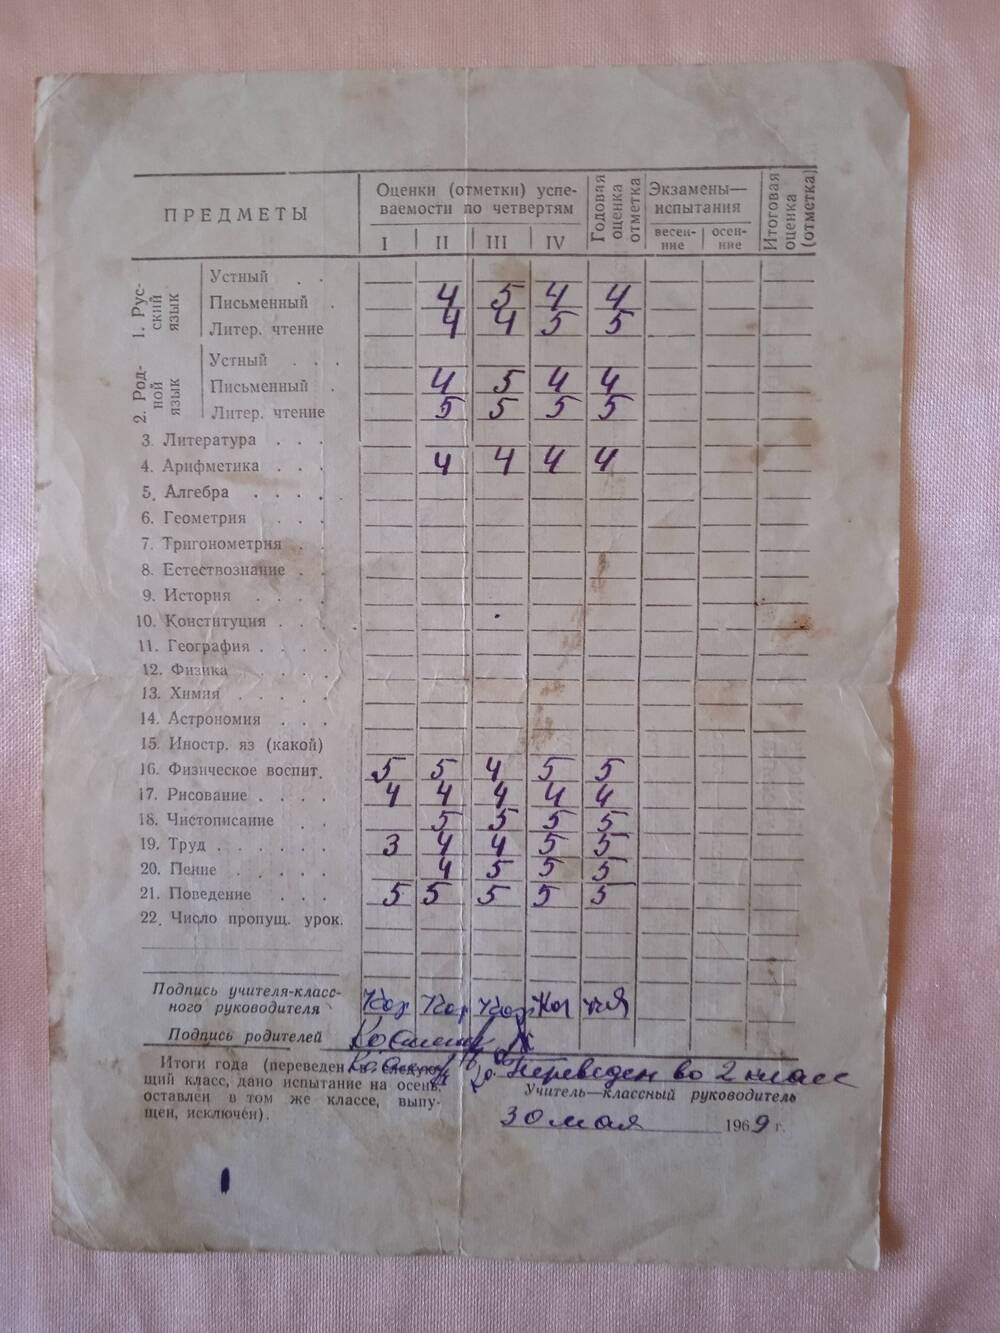 ПРЕДМЕТЫ
Оценки (отметки) успе-
ваемости по четвертям
I II III IV
Годовая
оценка
отметка
Экзамены—
испытания
весен-
ние
осен-
ние
Итоговая
оценка
(отметка)
1. Рус-
ский
язык
Устный . .
Письменный . 4 5 4 4
Литер. чтение 4 4 5 5
2. Род-
ной
язык
Устный . . .
Письменный . 4 5 4 4
Литер. чтение 5 5 5 5
3. Литература . . .
4. Арифметика . . . 4 4 4 4
5. Алгебра . . . .
6. Геометрия . . .
7. Тригонометрия . .
8. Естествознание . .
9. История . . . .
10. Конституция . . . .
11. География . . . .
12. Физика . . . .
13. Химия . . . .
14. Астрономия . . .
15. Иностр. яз (какой)
16. Физическое воспит. 5 5 4 5 5
17. Рисование . . . . 4 4 4 4 4
18. Чистописание . . 5 5 5 5
19. Труд . . . . . . 3 4 4 5 5
20. Пение . . . . . 4 5 5 5
21. Поведение . . . 5 5 5 5 5
22. Число пропущ. урок.
Подпись учителя-класс-
ного руководителя
Подпись родителей
Итоги года (переведен в следую-
щий класс, дано испытание на осень,
оставлен в том же классе, выпу-
щен, исключен).
Переведен во 2 класс
Учитель—классный руководитель
30 мая 1969 г.